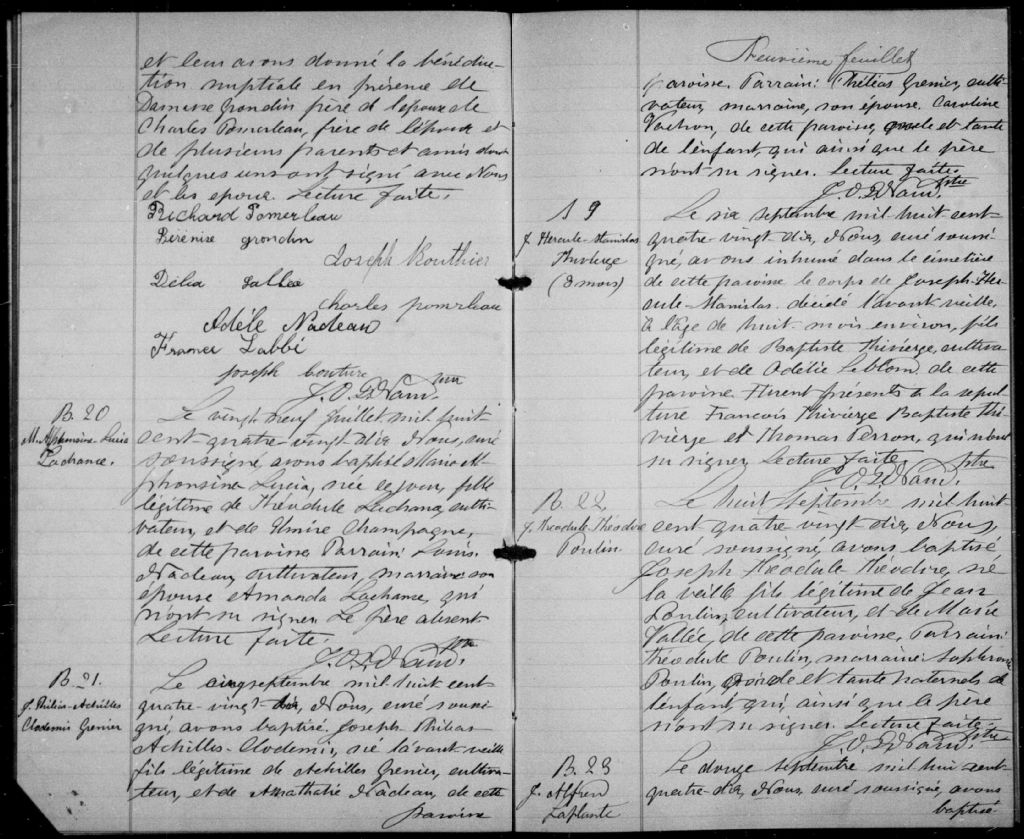 et leur avons donné la bénédic-
tion nuptiale en présence de
Damase Grondin père de l'épouse de
Charles Pomerleau, frère de l'époux et
de plusieurs parents et amis dont
quelques uns ont signé avec Nous
et les epoux. Lecture faite.
Richard Pomerleau
Bérénise grondin
Joseph Routhier
Délia Labbé
Charles pomerleau
Adèle Nadeau
Labbé
joseph couture
B. 20
M. Alphonsine Lucia
Lachance.
Le vingt neuf Juillet mil huit
cent quatre-vingt dix, Nous, curé
soussigné, avons baptisé Marie Al-
phonsine Lucia, née ce jour, fille
légitime de Théodule Lachance, culti-
vateur, et de Elmire Champagne,
de cette paroisse Parrain: Louis
Nadeau, cultivateur, marraine son
épouse Amanda Lachance, qui
n'ont su signer. Le père absent
Lecture faite.
B. 21.
J. Philias-Achilles
Clodomis Grenier
Le cinq septembre mil huit cent
quatre-vingt-dix, Nous, curé soussi-
gné, avons baptisé Joseph Philias
Achilles-Clodomis, né l'avant veille
fils légitime de Achilles Grenier, cultiva-
teur, et de Amathalie Nadeau, de cette
paroisse
Neuvième feuillet
paroisse. Parrain: Grenier, culti-
vateur, marraine, son épouse. Caroline
Vachon, de cette paroisse, oncle et tante
de l'enfant, qui ainsi que le père
n'ont su signer. Lecture faite.
ptre
S 9
J. Hercule-Stanislas
Thivierge
(8 mois)
Le six septembre mil huit cent-
quatre-vingt dix, Nous, curé soussi-
gné, avons inhumé dans le cimetière
de cette paroisse le corps de Joseph-Her-
cule-Stanislas. decédé l'avant veille,
à l'âge de huit-mois environ, fils
légitime de Baptiste Thivierge, cultiva-
teur, et de Odélie Leblond. de cette
paroisse. Furent présents à la sepul-
ture Francois Thivierge Baptiste Thi-
vierge et Thomas Perron, qui n'ont
su signer. Lecture faite
ptre
B. 22.
J. Théodule Théodore
Poulin
Le huit septembre mil huit
cent quatre-vingt dix, Nous,
curé soussigné, avons baptisé
Joseph Théodule Théodore, né
la veille fils légitime de Jean
Poulin, cultivateur, et de Marie
Vallée, de cette paroisse, Parrain:
Théodule Poulin, marraine Sophronie
Poulin, oncle et tante paternels de
l'enfant qui, ainsi que le père
n'ont su signer. Lecture faite.
ptre
B. 23
J. Alfred
Laplante
Le douze septembre mil huit cent-
quatre-dix, Nous, curé soussigné, avons
baptisé